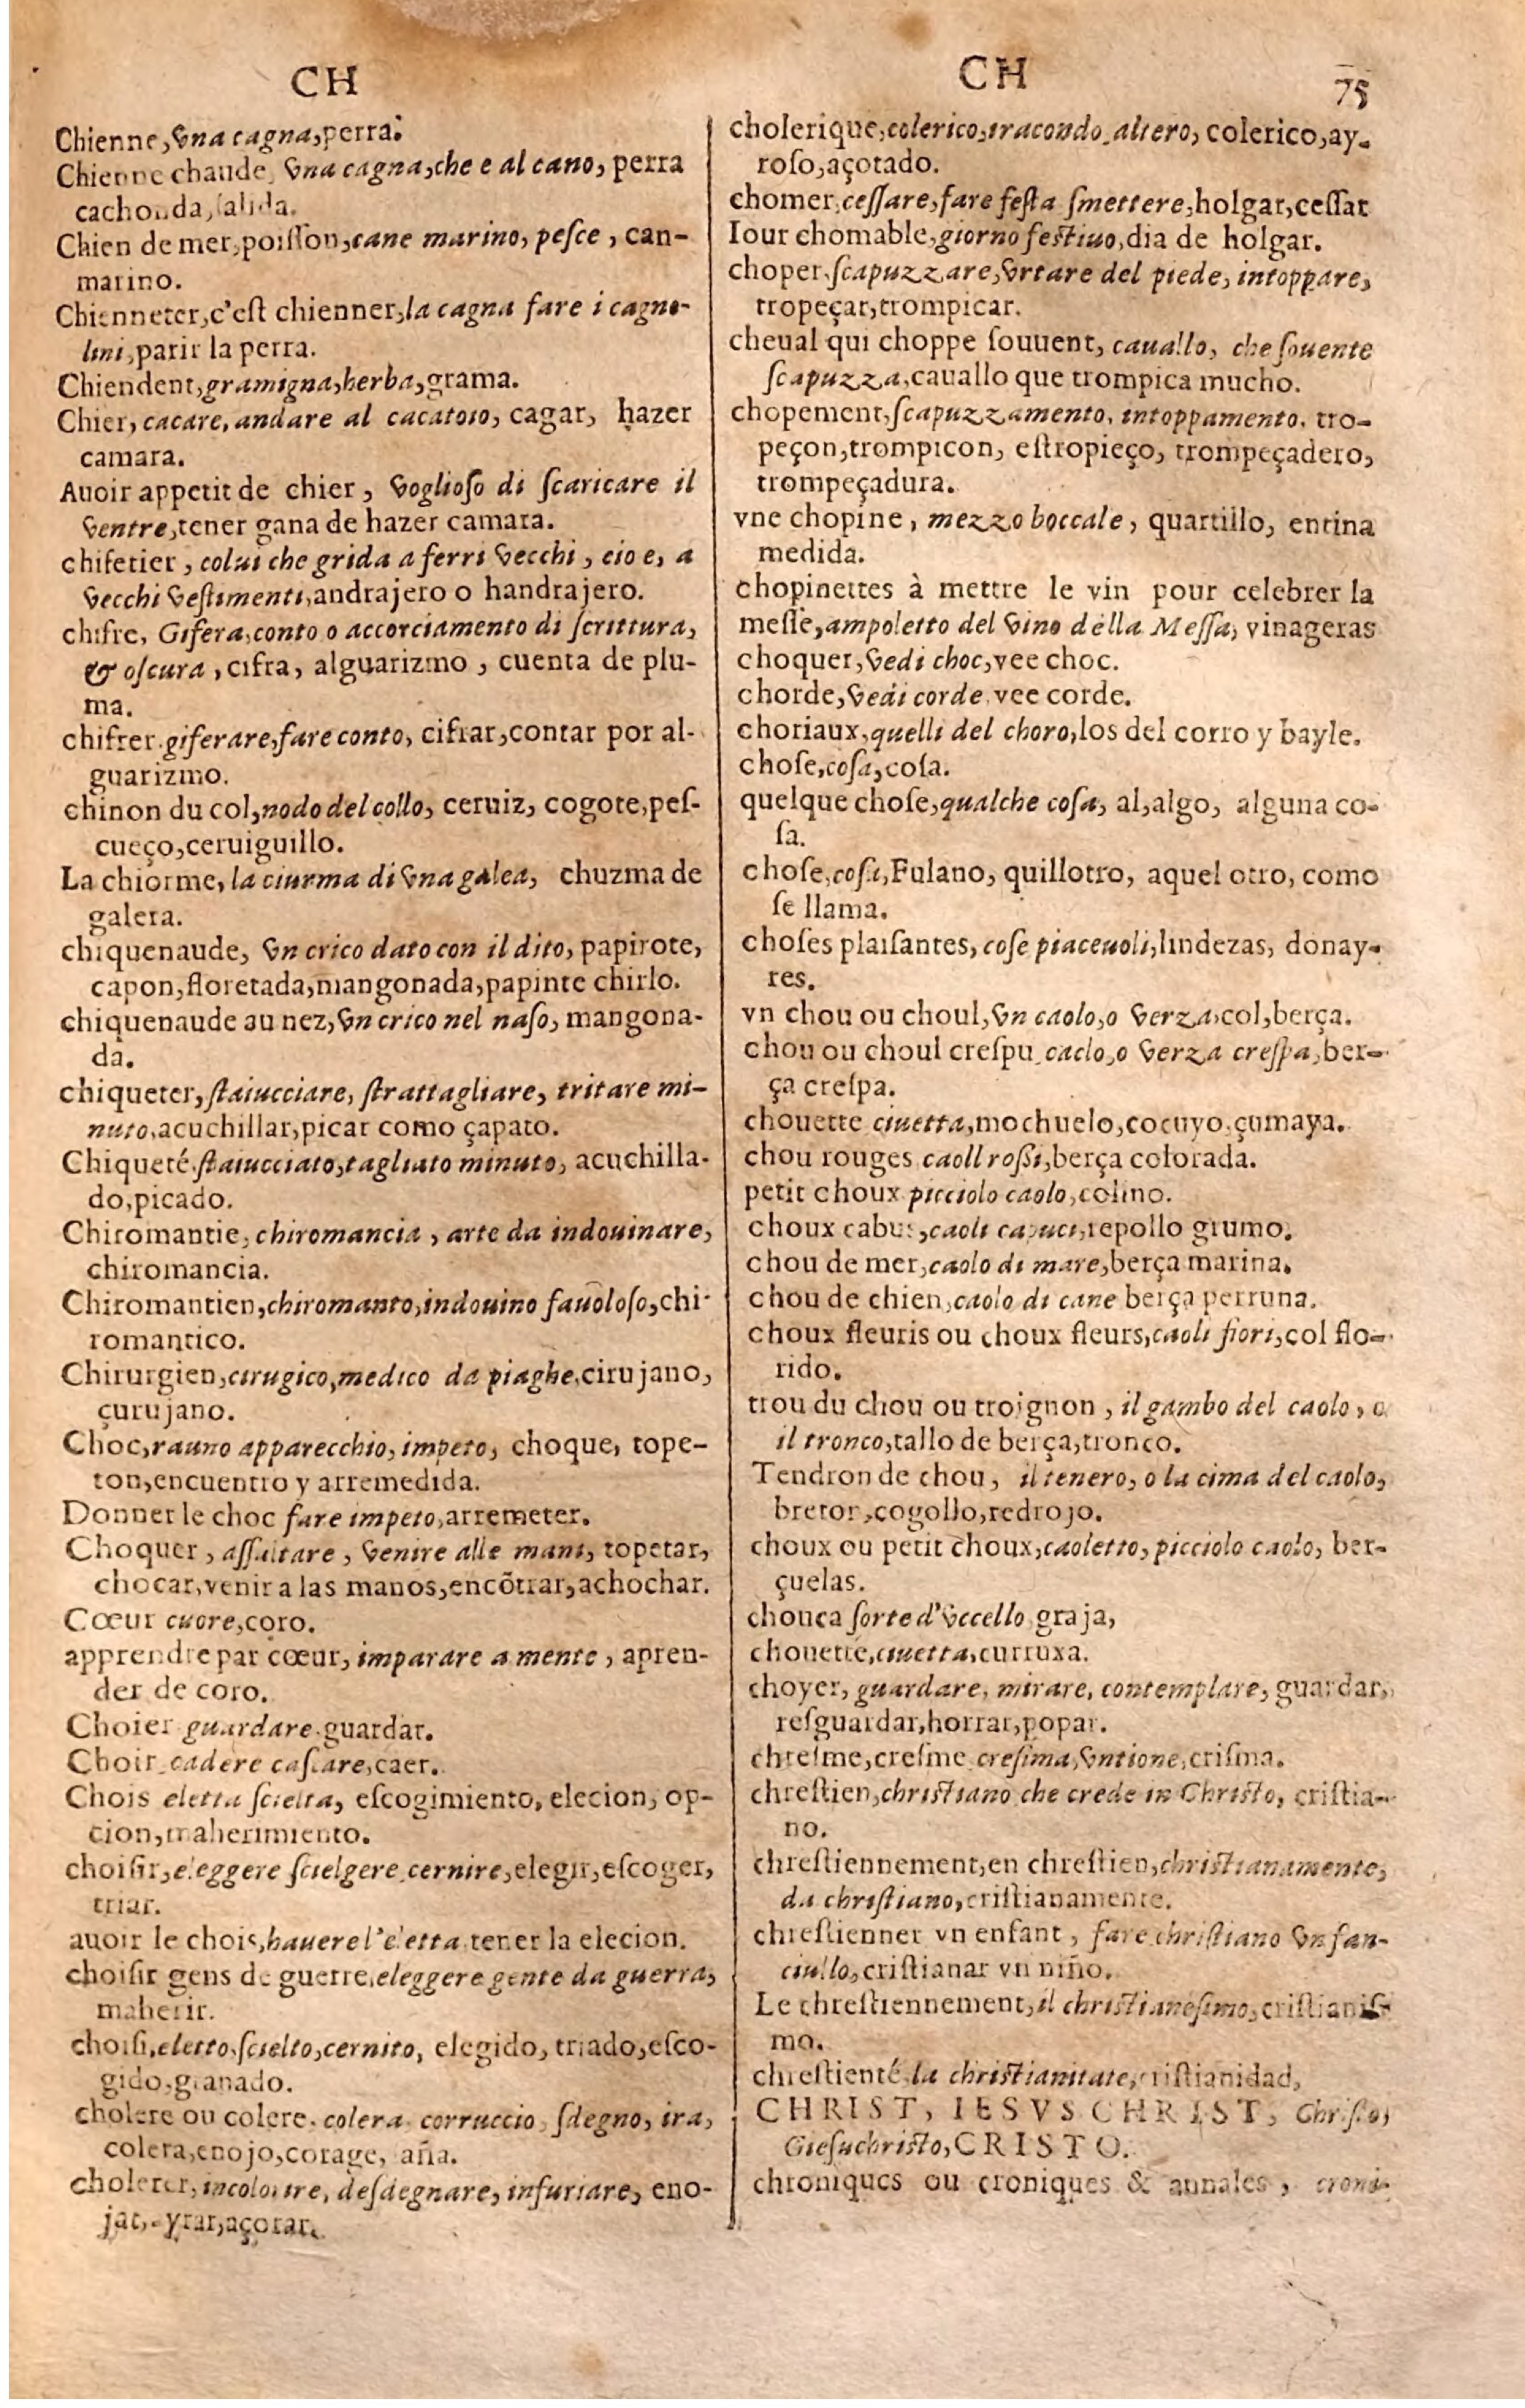 CH
Chienne, vna cagna, perra.
Chienne chaude, vna cagna, che e al cano, perra
cachonda, salida.
Chien de mer, poiſſon, cane marino, peſce, can-
marino.
Chienneter, c'eſt chienner, la cagna fare i cagno-
lini, parir la perra.
Chiendent, gramigna, herba, grama.
Chier, cacare, andare al cacatoio, cagar, hazer
camara.
Auoir appetit de chier, voglioſo di ſcaricare il
ventre, tener gana de hazer camara.
chifetier, colui che grida a ferri vecchi, cio e, a
vecchi veſtimenti, andrajero o handrajero.
chifre, Gifera, conto o accorciamento di ſcrittura,
& oſcura, cifra, alguarizmo, cuenta de plu-
ma.
chifrer giferare, fare conto, cifrar, contar por al-
guarizmo.
chinon du col, nodo del collo, ceruiz, cogote, peſ-
cueço, ceruiguillo.
La chiorme, la ciurma di vna galea, chuzma de
galera.
chiquenaude, vn crico dato con il dito, papirote,
capon, floretada, mangonada, papinte chirlo.
chiquenaude au nez, vn crico nel naſo, mangona-
da.
chiqueter, ſtaiucciare, ſtrattagliare, tritare mi-
nuto, acuchillar, picar como çapato.
Chiqueté ſtaiucciato, tagliato minuto, acuchilla-
do, picado.
Chiromantie, chiromancia, arte da indouinare,
chiromancia.
Chiromantien, chiromanto, indouino fauoloſo, chi-
romantico.
Chirurgien, cirugico, medico da piaghe, cirujano,
çurujano.
Choc, rauno apparecchio, impeto, choque, tope-
ton, encuentro y arremedida.
Donner le choc fare impeto, arremeter.
Choquer, aſſaltare, venire alle mani, topetar,
chocar, venir a las manos, encõtrar, achochar.
Cœur cuore, coro.
apprendre par cœur, imparare a mente, apren-
der de coro.
Choier guardare guardar.
Choir cadere caſcare, caer.
Chois eletta ſcielta, eſcogimiento, elecion, op-
cion, maherimiento.
choiſir, eleggere ſcielgere cernire, elegir, eſcoger,
triar.
auoir le chois, hauere l'eletta tener la elecion.
choiſir gens de guerre, eleggere gente da guerra,
maherir.
choiſi, eletto, ſcielto, cernito, elegido, triado, eſco-
gido, granado.
cholere ou colere, colera corruccio, ſdegno, ira,
colera, enojo, corage, aña.
cholerer, incolorire, deſdegnare, infuriare, eno-
jar, ayrar, açorar.
CH 75
cholerique, colerico, iracondo, altero, colerico, ay-
roſo, açotado.
chomer, ceſſare, fare feſta ſmettere, holgar, ceſſar
Iour chomable, giorno feſtiuo, dia de holgar.
choper, ſcapuzzare, vrtare del piede, intoppare,
tropeçar, trompicar.
cheual qui choppe ſouuent, cauallo, che ſouente
ſcapuzza, cauallo que trompica mucho.
chopement, ſcapuzzamento, intoppamento, tro-
peçon, trompicon, eſtropieço, trompeçadero,
trompeçadura.
vne chopine, mezzo boccale, quartillo, entina
medida.
chopinettes à mettre le vin pour celebrer la
meſſe, ampoletto del vino della Meſſa, vinageras
choquer, vedi choc, vee choc.
chorde, vedi corde, vee corde.
choriaux, quelli del choro, los del corro y bayle.
choſe, coſa, coſa.
quelque choſe, qualche coſa, al, algo, alguna co-
ſa.
choſe, coſa, Fulano, quillotro, aquel otro, como
ſe llama.
choſes plaiſantes, coſe piaceuoli, lindezas, donay-
res.
vn chou ou choul, vn caolo, o verza, col, berça.
chou ou choul creſpu, caolo, o verza creſpa, ber-
ça creſpa.
chouette ciuetta, mochuelo, cocuyo, çumaya.
chou rouges caoli roſſi, berça colorada.
petit choux picciolo caolo, colino.
choux cabus, caoli capuci, repollo grumo.
chou de mer, caolo di mare, berça marina.
chou de chien, caolo di cane berça perruna.
choux fleuris ou choux fleurs, caoli fiori, col flo-
rido.
trou du chou ou troignon, il gambo del caolo, o
il tronco, tallo de berça, tronco.
Tendron de chou, il tenero, o la cima del caolo,
breton, cogollo, redrojo.
choux ou petit choux, caoletto, picciolo caolo, ber-
çuelas.
chouca ſorte d'vccello graja,
chouette, ciuetta, curruxa.
choyer, guardare, mirare, contemplare, guardar,
reſguardar, horrar, popar.
chreſme, creſme creſima, vntione, criſma.
chreſtien, chriſtiano che crede in Chriſto, criſtia-
no.
chreſtiennement, en chreſtien, chriſtianamente,
da chriſtiano, criſtianamente.
chreſtienner vn enfant, fare chriſtiano vn fan-
ciullo, criſtianar vn niño.
Le chreſtiennement, il chriſtianeſimo, criſtianiſ-
mo.
chreſtienté, la chriſtianitate, criſtianidad,
CHRIST, IESVS CHRIST, Chriſto,
Gieſuchriſto, CRISTO.
chroniques ou croniques & annales, croni-